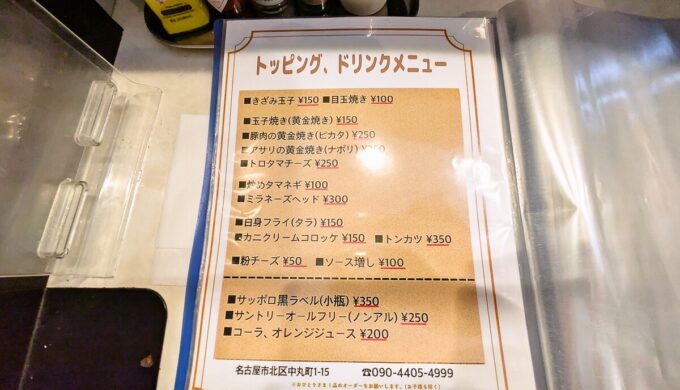 トッピング、ドリンクメニュー
■きざみ玉子 ¥150 ■目玉焼き ¥100
■玉子焼き(黄金焼き) ¥150
■豚肉の黄金焼き(ピカタ) ¥250
■アサリの黄金焼き(ナポリ)
■トロタマチーズ ¥250
■炒めタマネギ ¥100
■ミラネーズヘッド ¥300
■白身フライ(タラ) ¥150
■カニクリームコロッケ ¥150 ■トンカツ ¥350
■粉チーズ ¥50 ■ソース増し ¥100
■サッポロ黒ラベル(小瓶) ¥350
■サントリーオールフリー(ノンアル) ¥250
■コーラ、オレンジジュース ¥200
名古屋市北区中丸町1-15 ☎090-4405-4999
※おひとりさま1品のオーダーをお願いします。(お子様を除く)